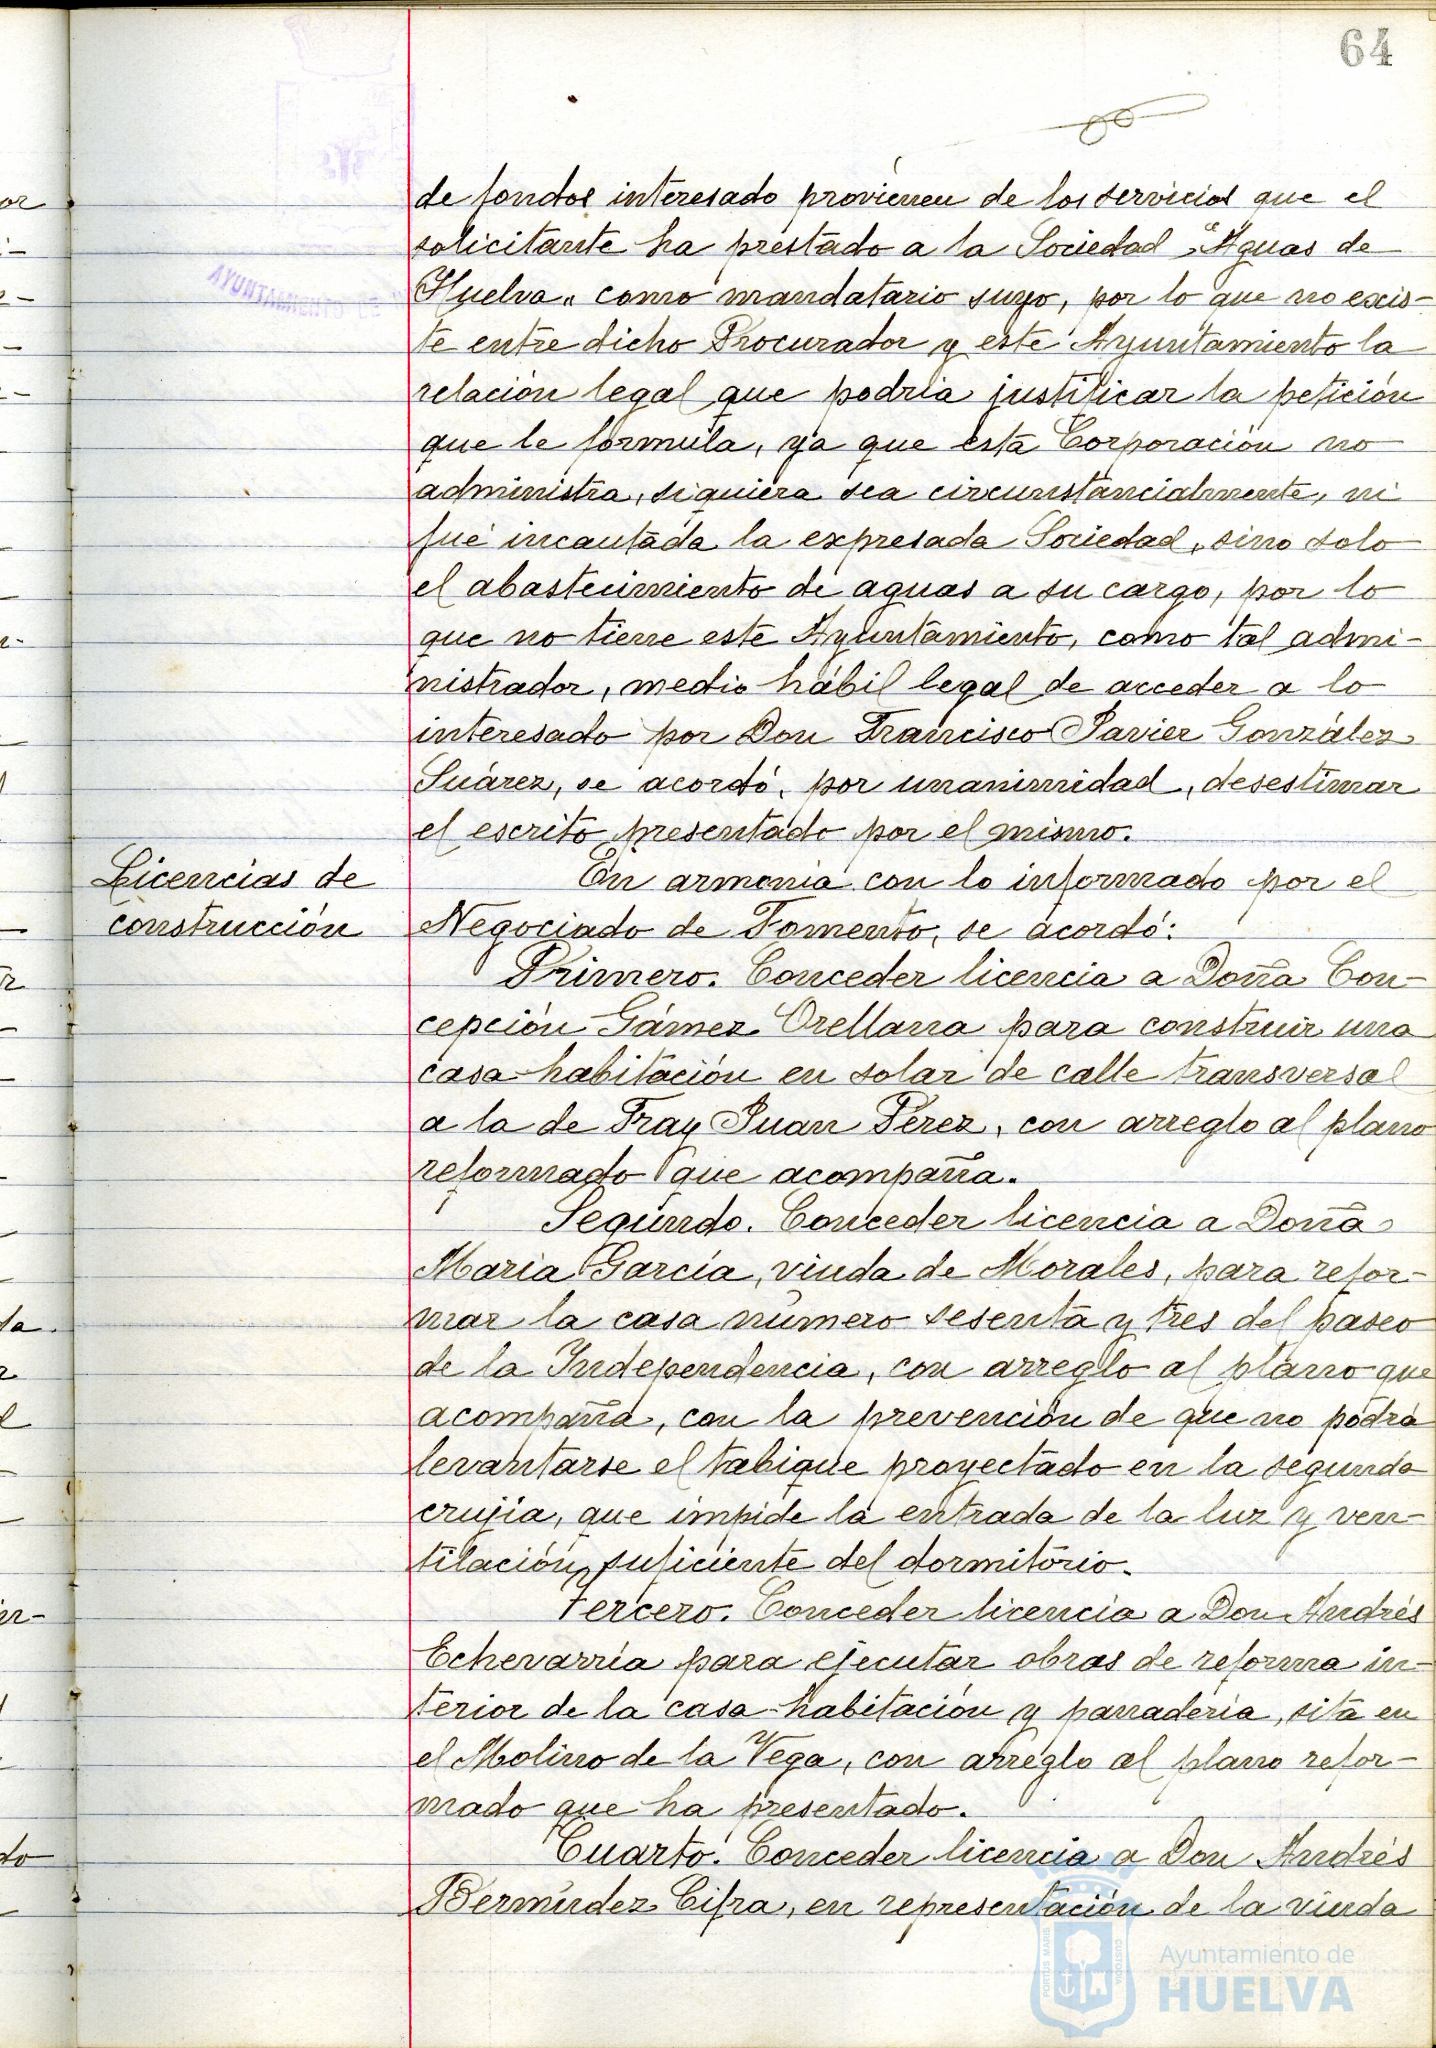 64
de fondos interesado provienen de los servicios que el
solicitante ha prestado a la Sociedad "Aguas de
Huelva" como mandatario suyo, por lo que no exis-
te entre dicho Procurador y este Ayuntamiento la
relación legal que podria justificar la petición
que le formula, ya que esta Corporación no
administra, siquiera sea circunstancialmente, ni
fué incautada la expresada Sociedad, sino solo
el abastecimiento de aguas a su cargo, por lo
que no tiene este Ayuntamiento, como tal admi-
nistrador, medio hábil legal de acceder a lo
interesado por Don Francisco Javier González
Suárez, se acordó, por unanimidad, desestimar
el escrito presentado por el mismo.
Licencias de
construcción
En armonia con lo informado por el
Negociado de Fomento, se acordó:
Primero. Conceder licencia a Doña Con-
cepción Gámez Orellana para construir una
casa-habitación en solar de calle transversal
a la de Fray Juan Pérez, con arreglo al plano
reformado que acompaña.
Segundo. Conceder licencia a Doña
Maria García, viuda de Morales, para refor-
mar la casa número sesenta y tres del paseo
de la Independencia, con arreglo al plano que
acompaña, con la prevención de que no podrá
levantarse el tabique proyectado en la segunda
crujia, que impide la entrada de la luz y ven-
tilación suficiente del dormitorio.
Tercero. Conceder licencia a Don Andrés
Echevarría para ejecutar obras de reforma in-
terior de la casa-habitación y panaderia, sita en
el Molino de la Vega, con arreglo al plano refor-
mado que ha presentado.
Cuarto. Conceder licencia a Don Andrés
Bermúdez Cifra, en representación de la viuda
AYUNTAMIENTO DE
PORTUS MARIS
CUSTODIA
Ayuntamiento de
HUELVA